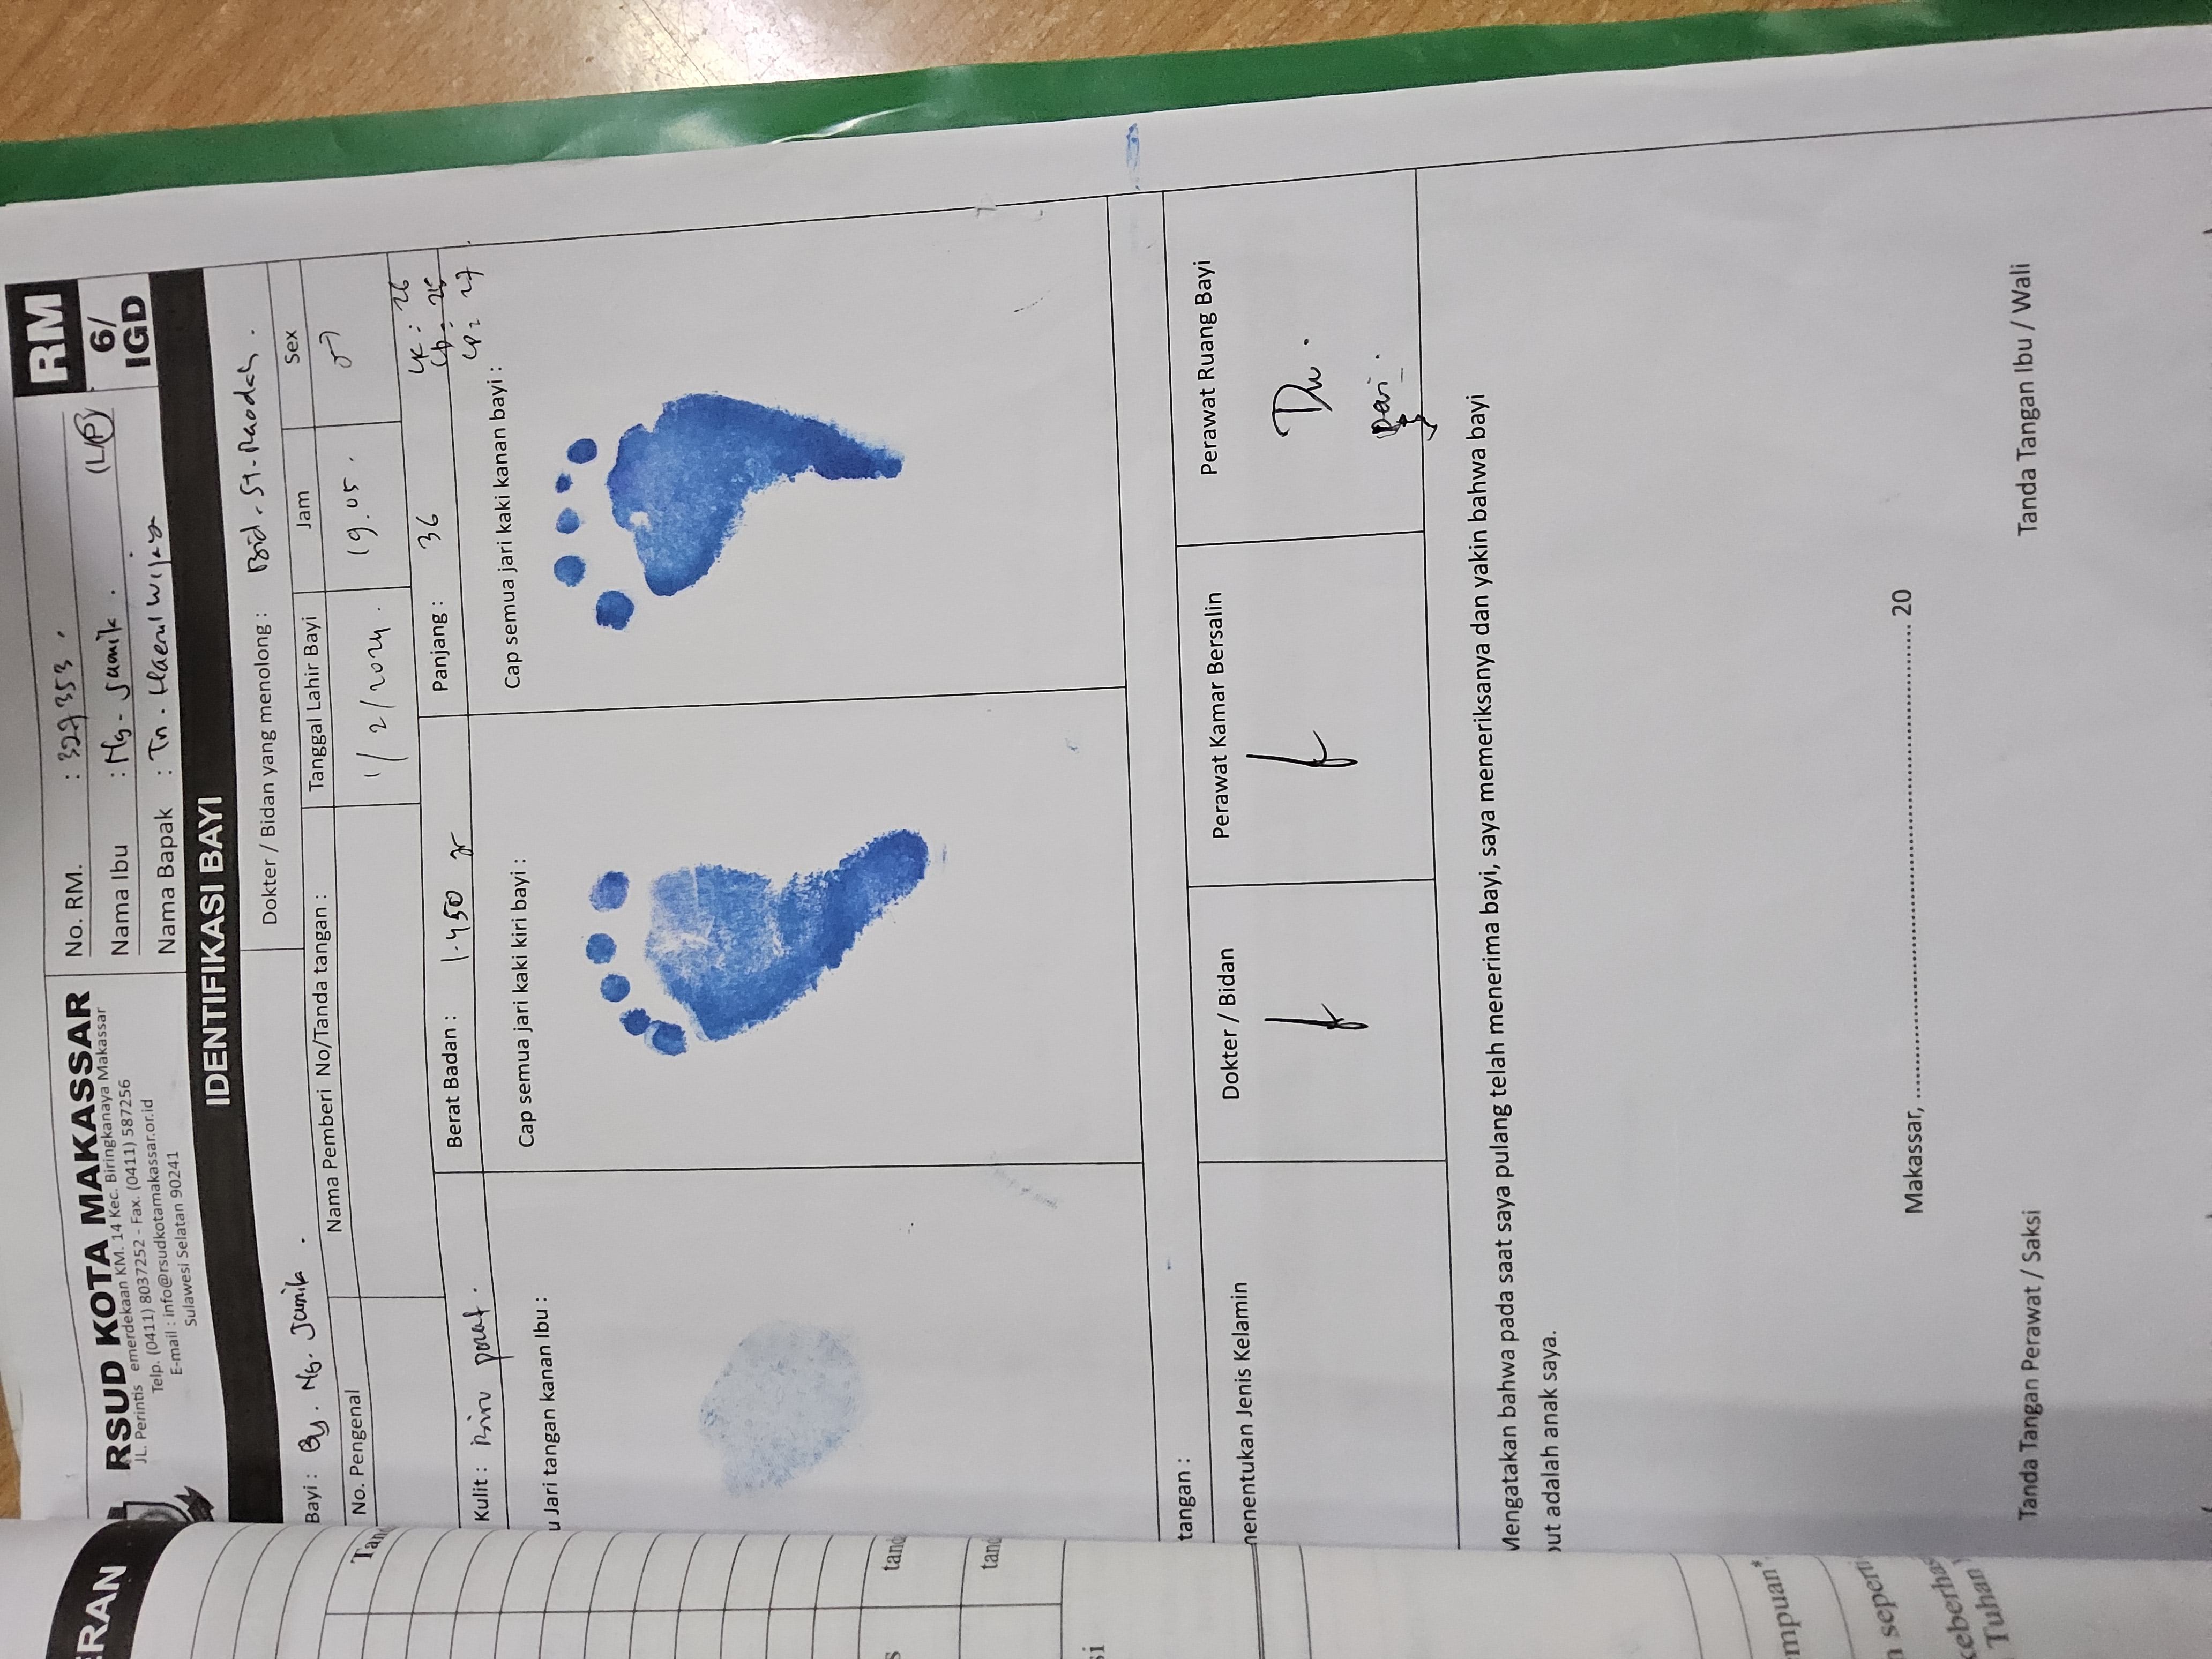 ERAN
RSUD KOTA MAKASSAR
JL. Perintis emerdekaan KM. 14 Kec. Biringkanaya Makassar
Telp. (0411) 8037252 - Fax. (0411) 587256
E-mail : info@rsudkotamakassar.or.id
Sulawesi Selatan 90241
No. RM. : 327353
Nama Ibu : Ny. Jamila (L/P)
Nama Bapak : Tn. Haerul Wijaya
RM
6/
IGD
IDENTIFIKASI BAYI
Bayi : By. Ny. Jamila
Dokter / Bidan yang menolong : Bid. St. Raodah
No. Pengenal
Nama Pemberi No/Tanda tangan :
Tanggal Lahir Bayi
Jam
Sex
1/2/2024
19.05
♂
Kulit : Biru pucat
Berat Badan : 1.450 gr
Panjang : 36
LK : 26
LD = 25
LP = 27
u Jari tangan kanan Ibu :
Cap semua jari kaki kiri bayi :
Cap semua jari kaki kanan bayi :
tangan :
menentukan Jenis Kelamin
Dokter / Bidan
Perawat Kamar Bersalin
Perawat Ruang Bayi
Mengatakan bahwa pada saat saya pulang telah menerima bayi, saya memeriksanya dan yakin bahwa bayi
but adalah anak saya.
Makassar, ........................................................................ 20
Tanda Tangan Perawat / Saksi
Tanda Tangan Ibu / Wali
Tan
s
tand
tand
si
mpuan*
n seperti
keberhas
Tuhan